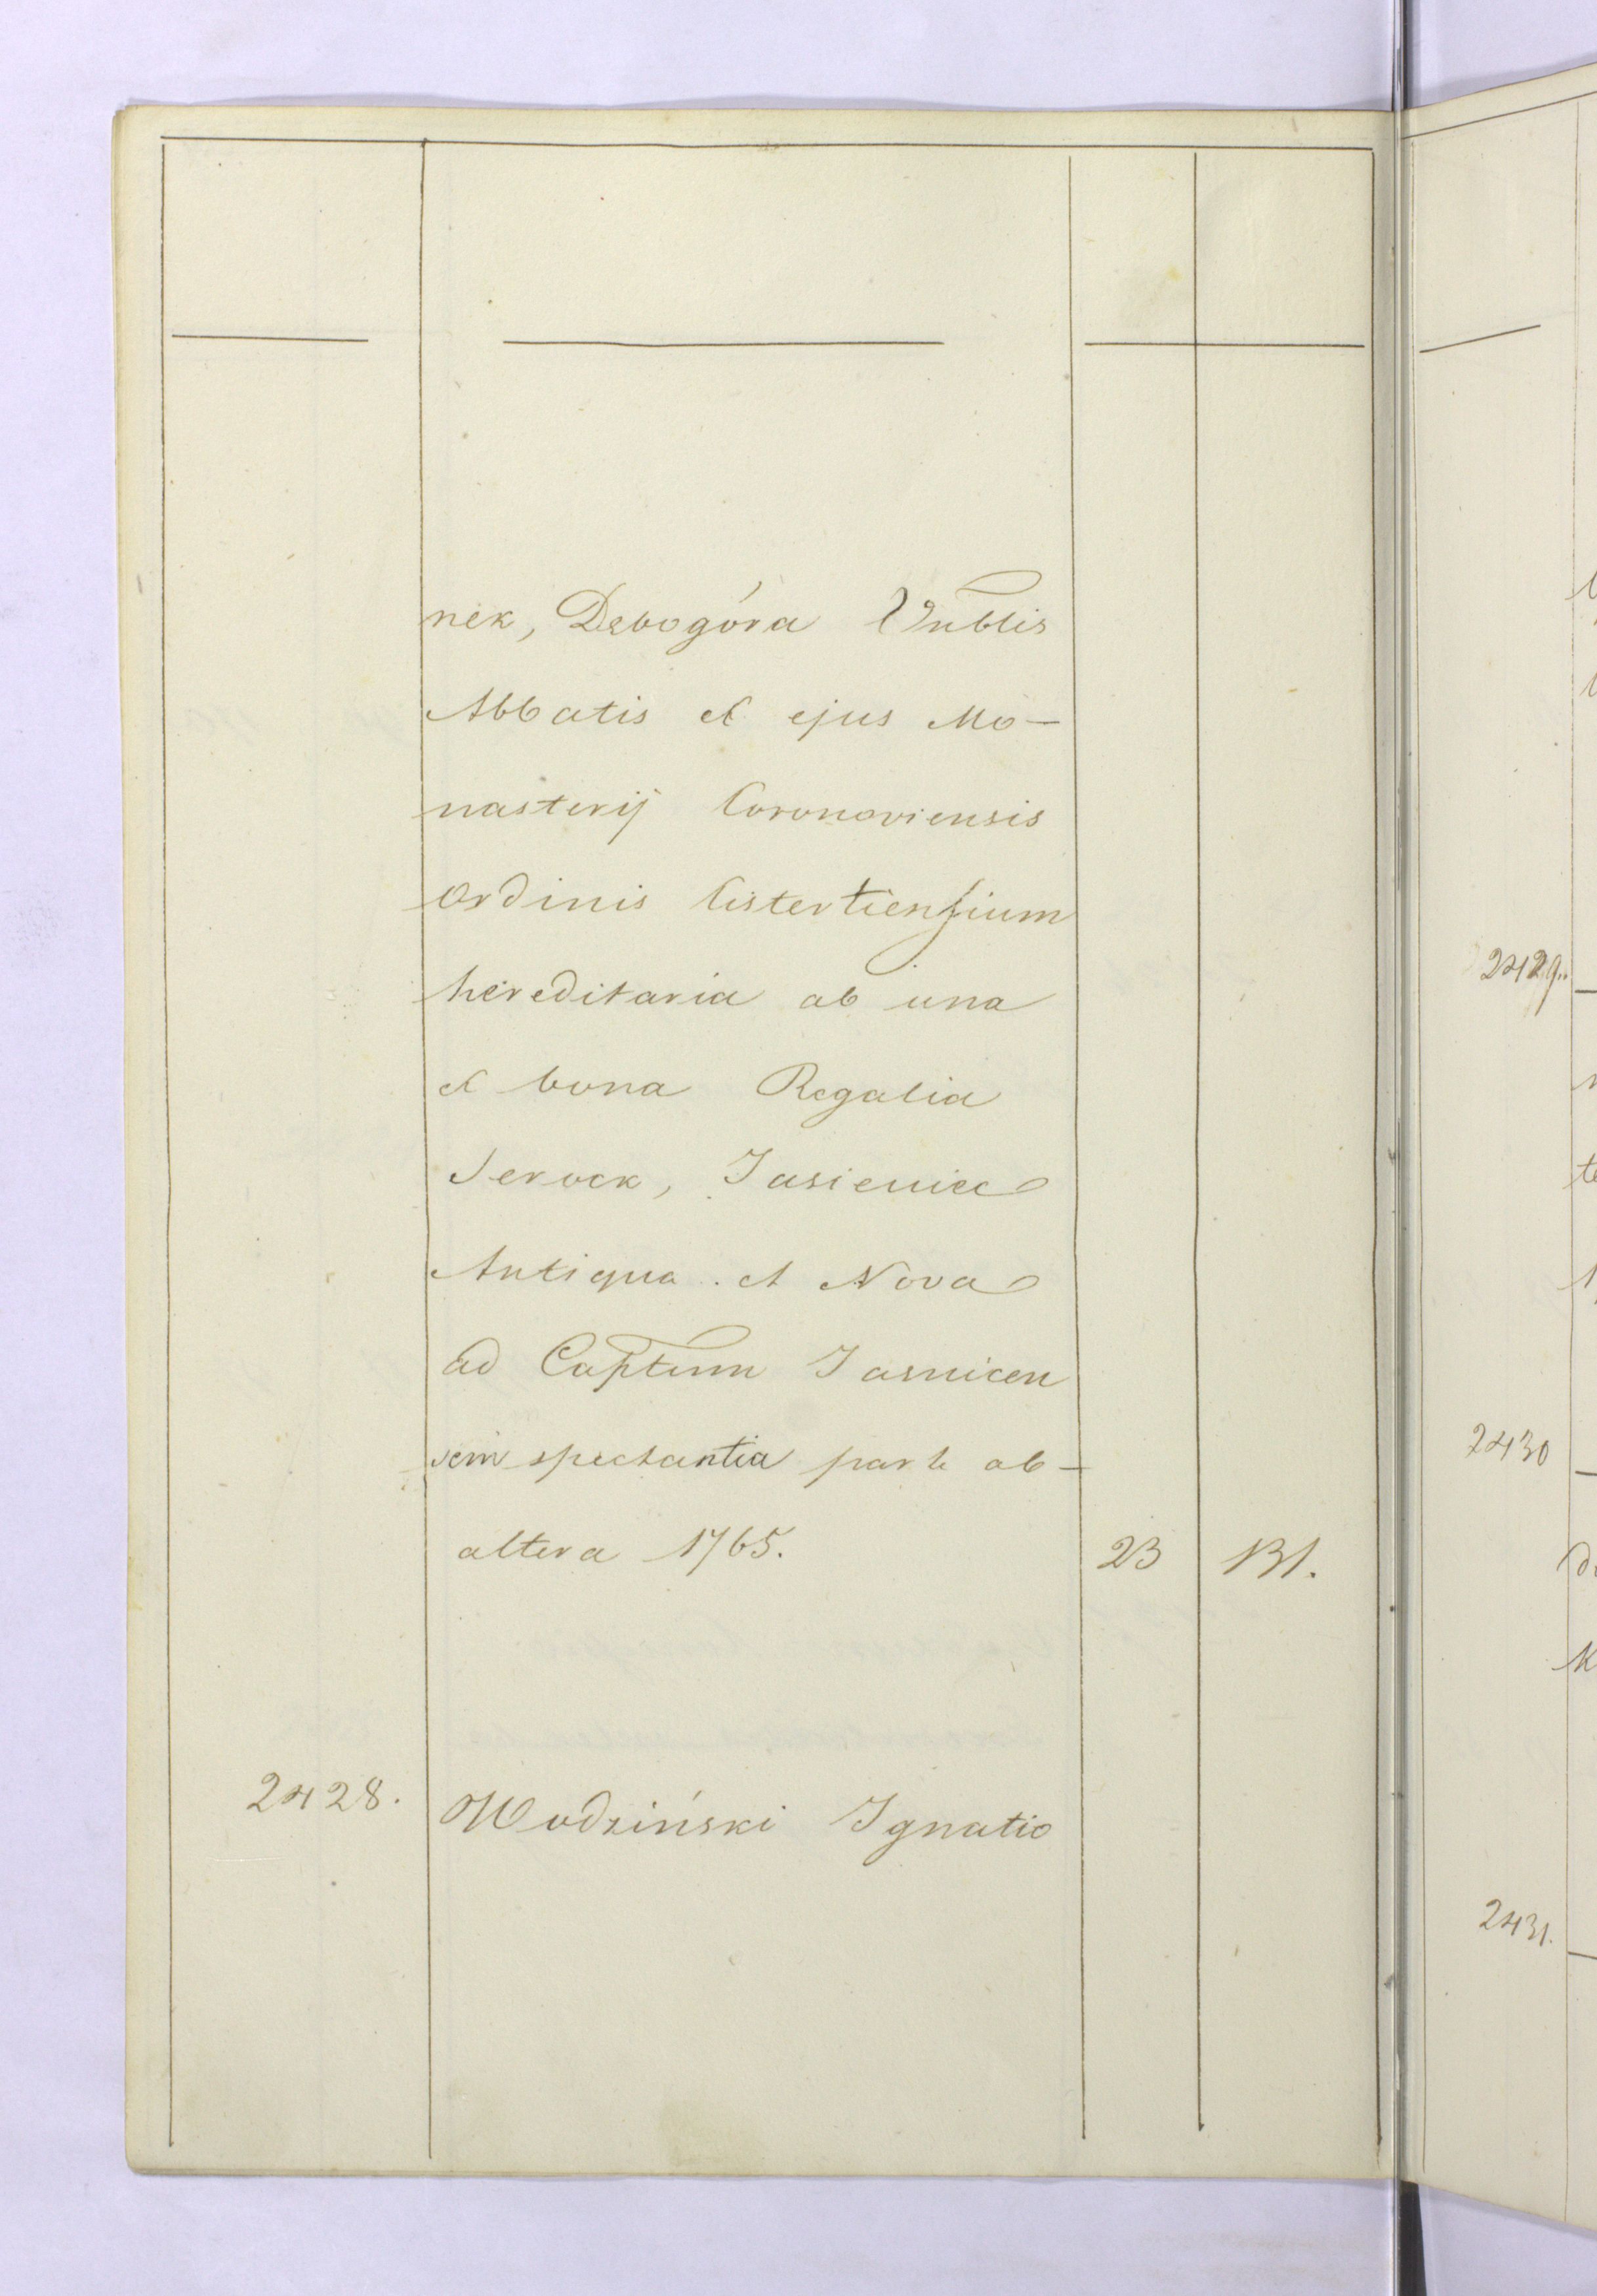 nek, Dębogóra Vnblis
Abbatis et ejus Mo-
nasterij Coronoviensis
Ordinis Cistertiensium
hereditaria ab una
et bona Regalia
Serock, Jasieniec
Antiqua et Nova
ad Captum Jasnicen
sem spectantia parte ab-
altera 1765. 23 131.
2428. Wodziński Ignatio
2429.
2430
2431.